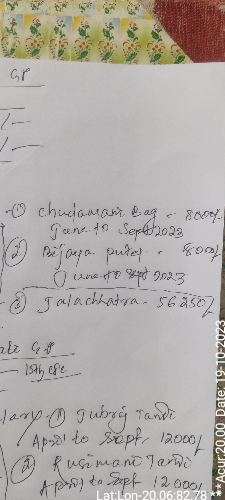 GP
① Chudamani Bag - 8000/-
June to Sept 2023
② Bijaya putel - 8000/-
June to Sept 2023
③ Jalachhatra - 56250/
GP
15th CFC
① Jubraj Tandi
April to Sept. 12000/
② Rusimani Tandi
April to Sept 12000/
Lat:Lon-20.06:82.78 *** Acur:20.00 Date: 19-10-2023